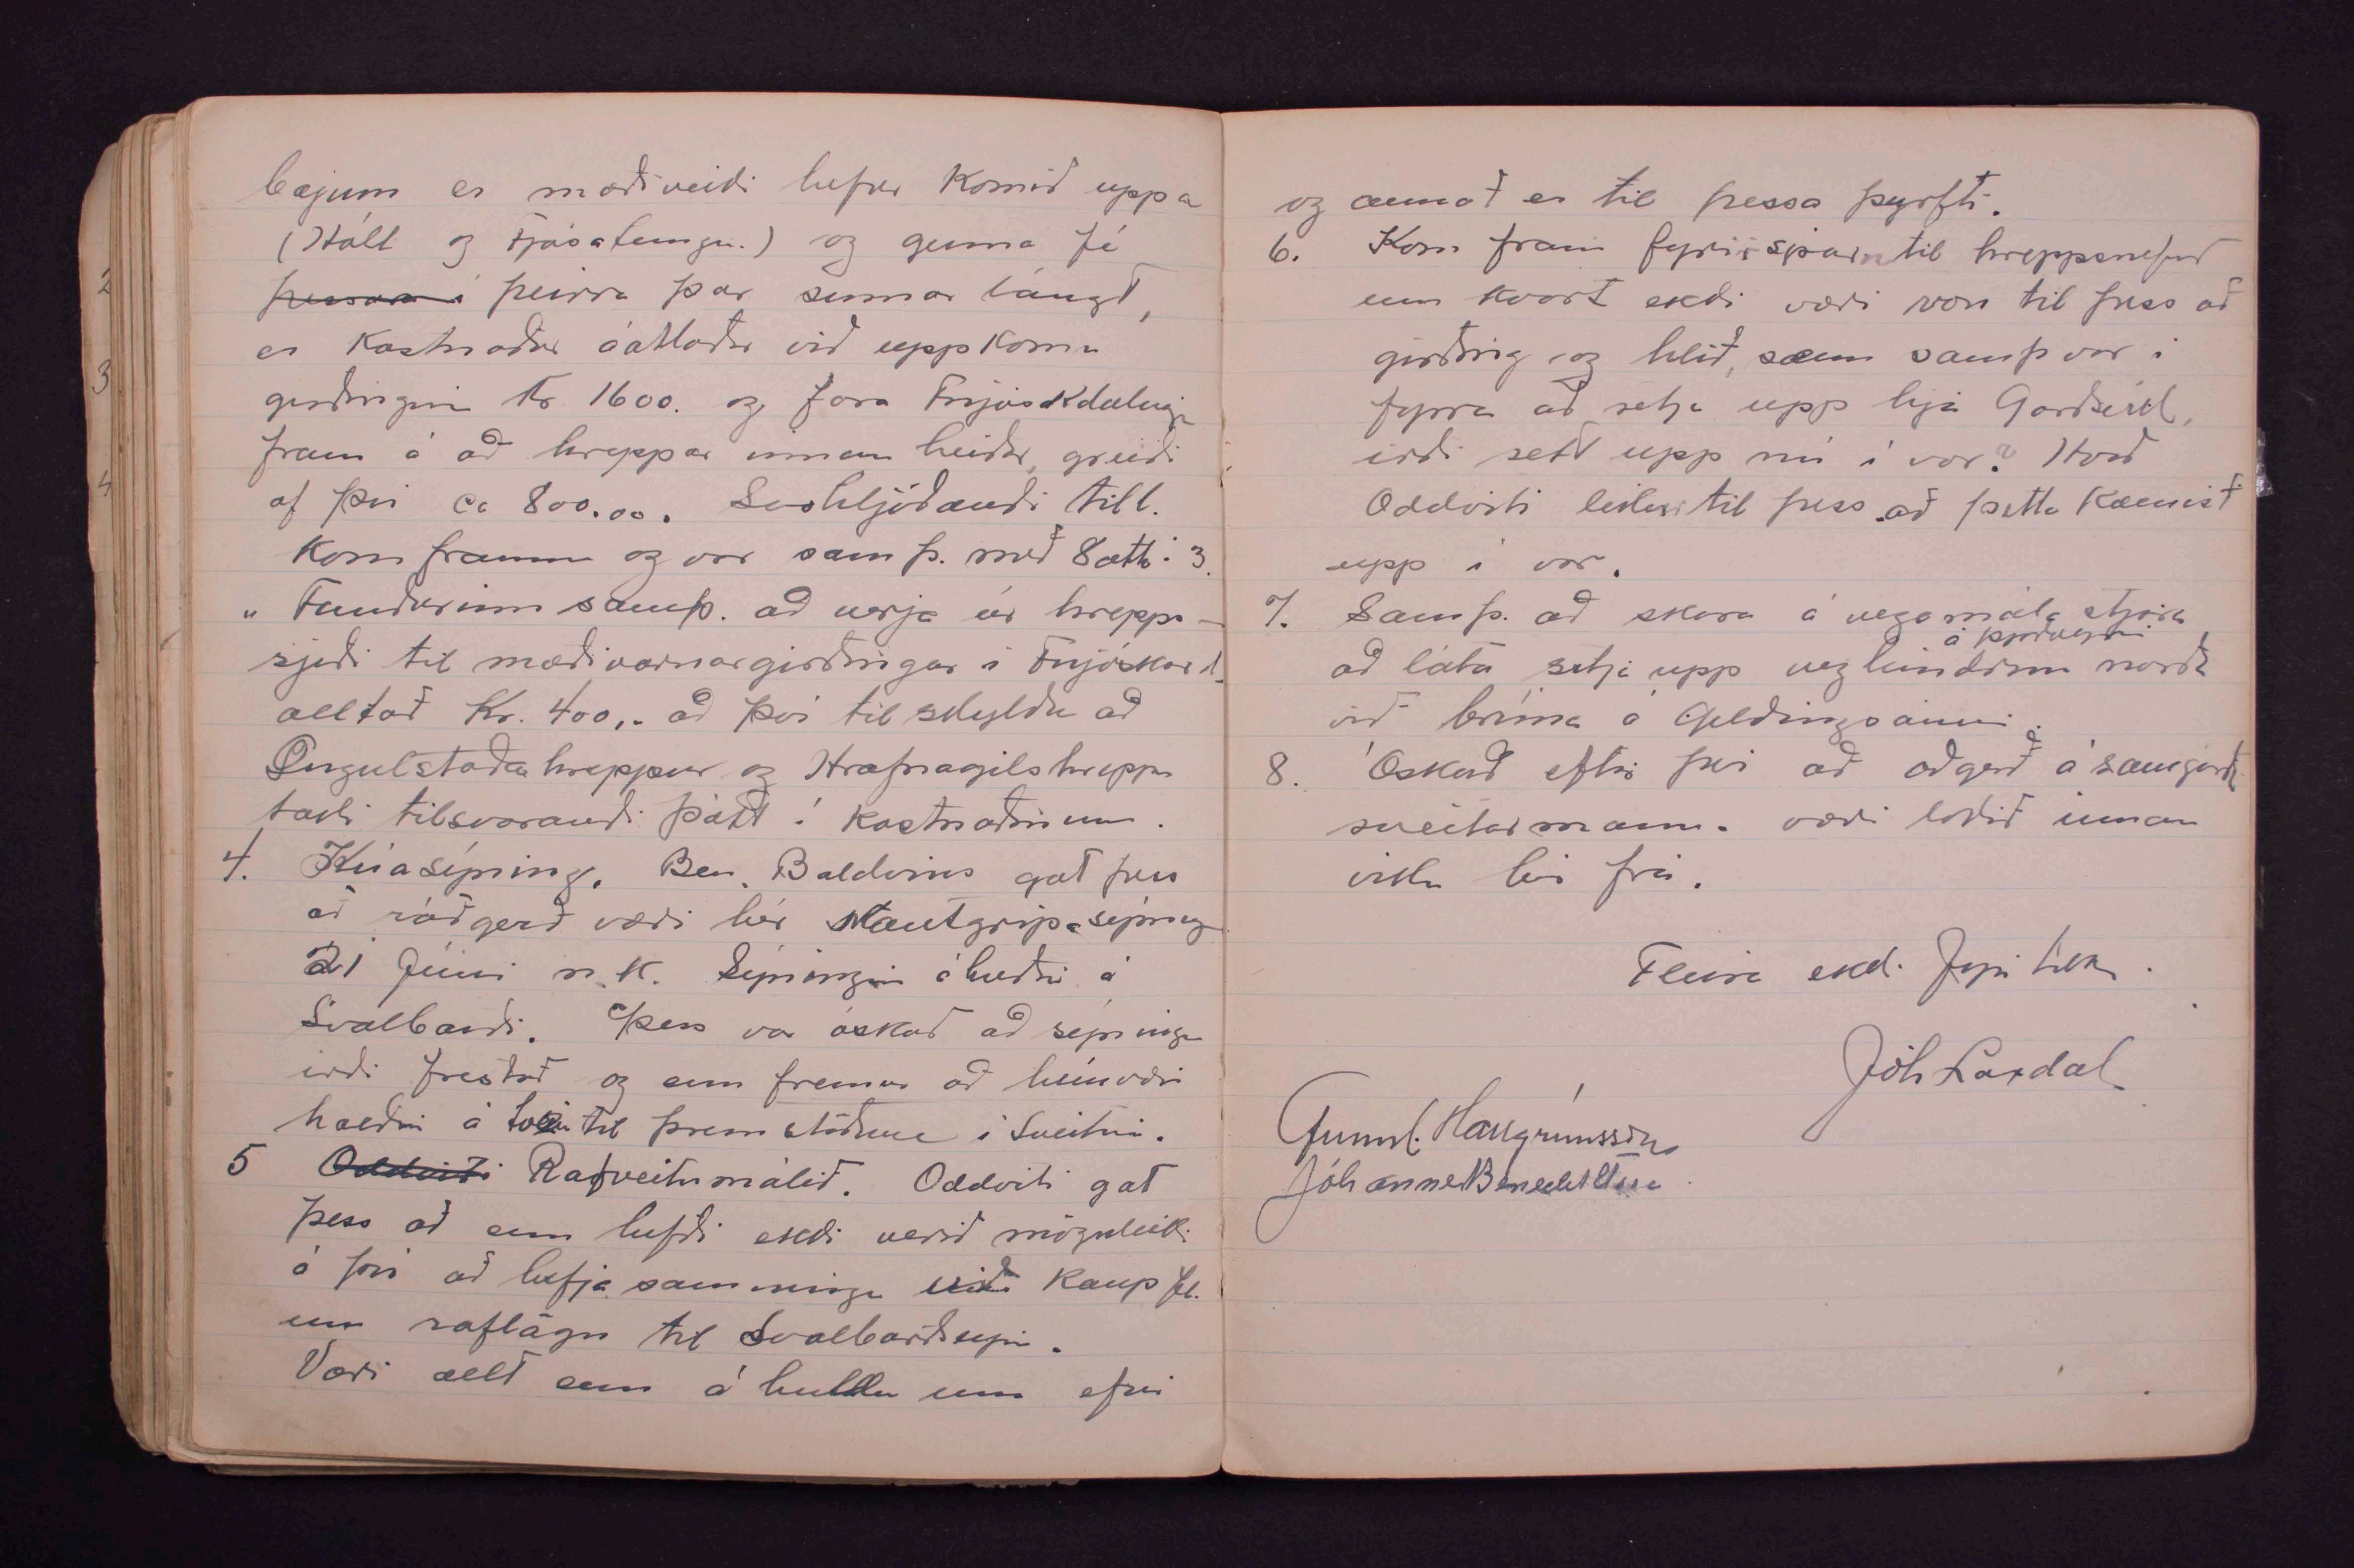 bæjum er mæðiveiki hefur komið upp a
(Háll og Fjósatungu.) og geyma fé
þessara i þeirra þar sumar lángt,
er kostnaður áatlaður við uppkomu
girðingin kr 1600. og fara Fnjóskdælingar
fram á að hreppar innan heiðar, greiði
af þvi ca 800.00. Svohljóðandi till.
kom framm og var samþ. með 8 atk: 3.
" Fundurinn samþ. að verja úr hrepps-
sjóði til mæðivarnargirðingar i Fnjóskard.
alltað Kr. 400,- að þvi til skyldu að
Öngulstaðahreppur og Hrafnagilshreppur
taki tilsvarandi þátt i kostnaðinum.
4. Kúasýning. Ben. Baldvins gat þess
að ráðgerð væri hér Nautgripasýning
21 Júni n.k. Sýningin áhveðin á
Svalbarði. Þess var óskað að sýninga
irði frestað og enn fremur að hún væri
haldin á tveim til þrem stöðum i Sveitini.
5 Oddviti Rafveitumálið. Oddviti gat
þess að enn hefði ekki verið möguleiki
á þvi að hefja samninga við Kaupfl.
um raflögn til Svalbarðseyri.
Væri allt enn á huldu um efni
og annað er til þessa þyrfti.
6. Kom fram fyrirspurn til hreppsnefnd
um hvort ekki væri von til þess að
girðing og hlið, sem samþ var i
fyrra að setja upp hjá Garðsvík,
irði sett upp nú i vor? Hvað
Oddviti líkur til þess að þetta kæmist
upp i vor.
7. Samþ. að skora á vegamálastjóra
á þjóðveginn
að láta setja upp veghindrun norðan
við brúna á Geldingsánni.
8. Óskað eftir þvi að aðgerð á samgirð.
sveitarmanna væri lokið innan
viku hér frá.
Fleira ekki fyri tekið.
Jóh Laxdal
Gunnl. Hallgrímsson
Jóhannes Benediktsson